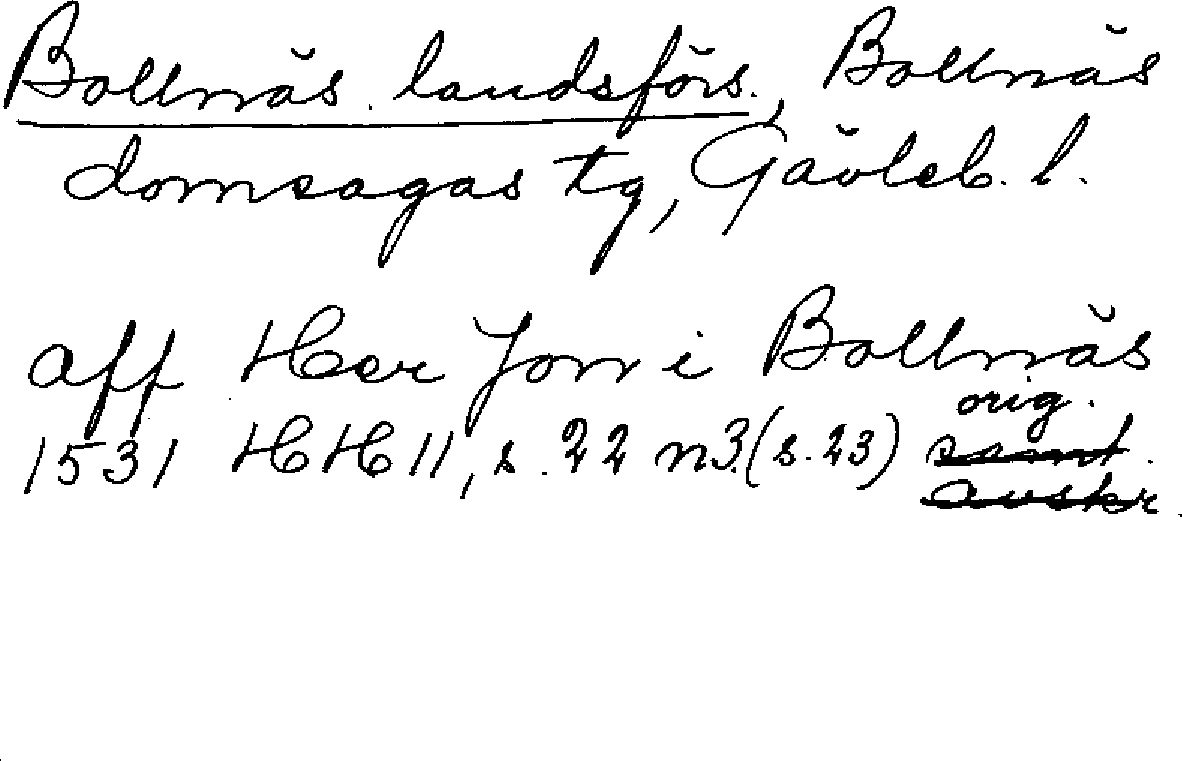 Bollnäs landsförs., Bollnäs
domsagas tg, Gävleb. l.
aff Her Jon i Bollnäs
orig.
1531 HH 11, s. 22 n3. (s. 23) samt.
avskr.